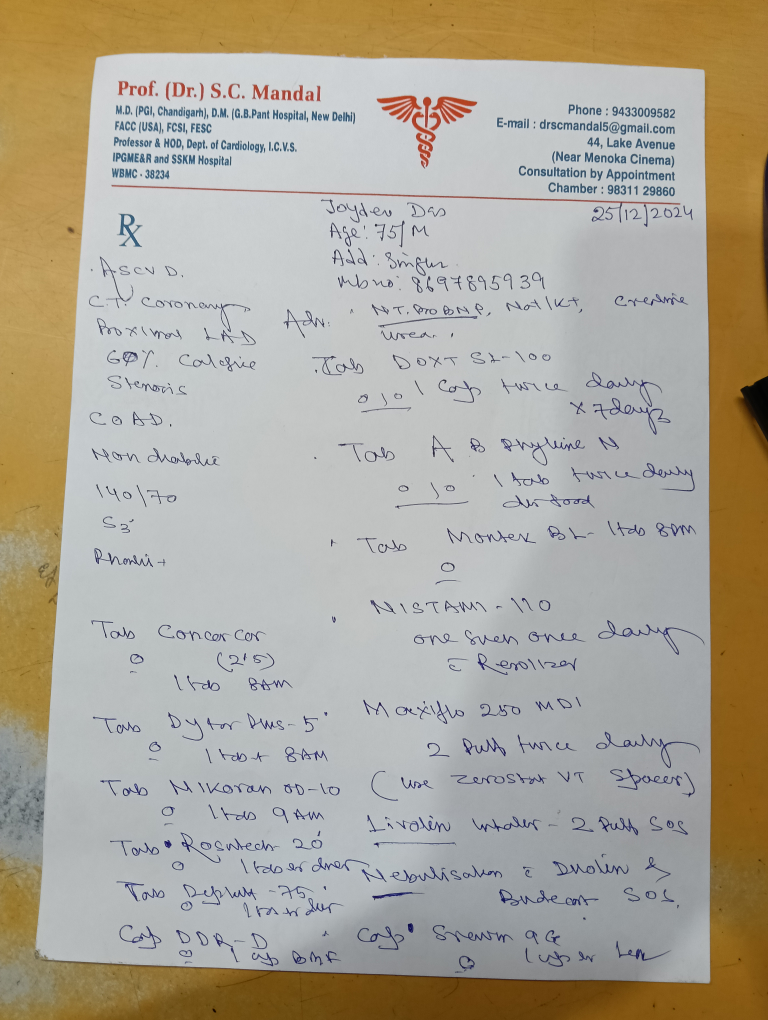 Prof. (Dr.) S.C. Mandal
M.D. (PGI, Chandigarh), D.M. (G.B.Pant Hospital, New Delhi)
FACC (USA), FCSI, FESC
Professor & HOD, Dept. of Cardiology, I.C.V.S.
IPGME&R and SSKM Hospital
WBMC - 38234
Phone : 9433009582
E-mail : drscmandal5@gmail.com
44, Lake Avenue
(Near Menoka Cinema)
Consultation by Appointment
Chamber : 98311 29860
25/12/2024
Rx
Joydev Das
Age: 75/M
Add: Singur
Mb no: 8697895939
ASCVD.
C.T. Coronary
Proximal LAD
60% Calcific
Stenosis
COAD.
Non diabetic
140/70
S3
Rhonchi +
Tab Concor cor
(2.5)
1 tab 8AM
Tab Dytor Plus - 5
1 tab 8AM
Tab Nikoran OD-10
1 tab 9AM
Tab 20
1 tab dinner
Tab Deplatt - 75
1 tab
Cap DDR-D
1 cap BMF
Adv. NT. Pro BNP, Na+/K+,
urea.
Tab DOXT SL-100
0 1 0 1 Cap twice daily
x 7 days
Tab A B Phylline N
0 1 0 1 tab twice daily
food
Tab Montek BL - 1 tab 8PM
- 110
once daily
c Revolizer
Maxiflo 250 MDI
2 Puff twice daily
(use Zerostat VT Spacer)
Livolin Inhaler - 2 Puff SOS
Nebulisation c Duolin &
Budecort SOS.
Cap
1 cap